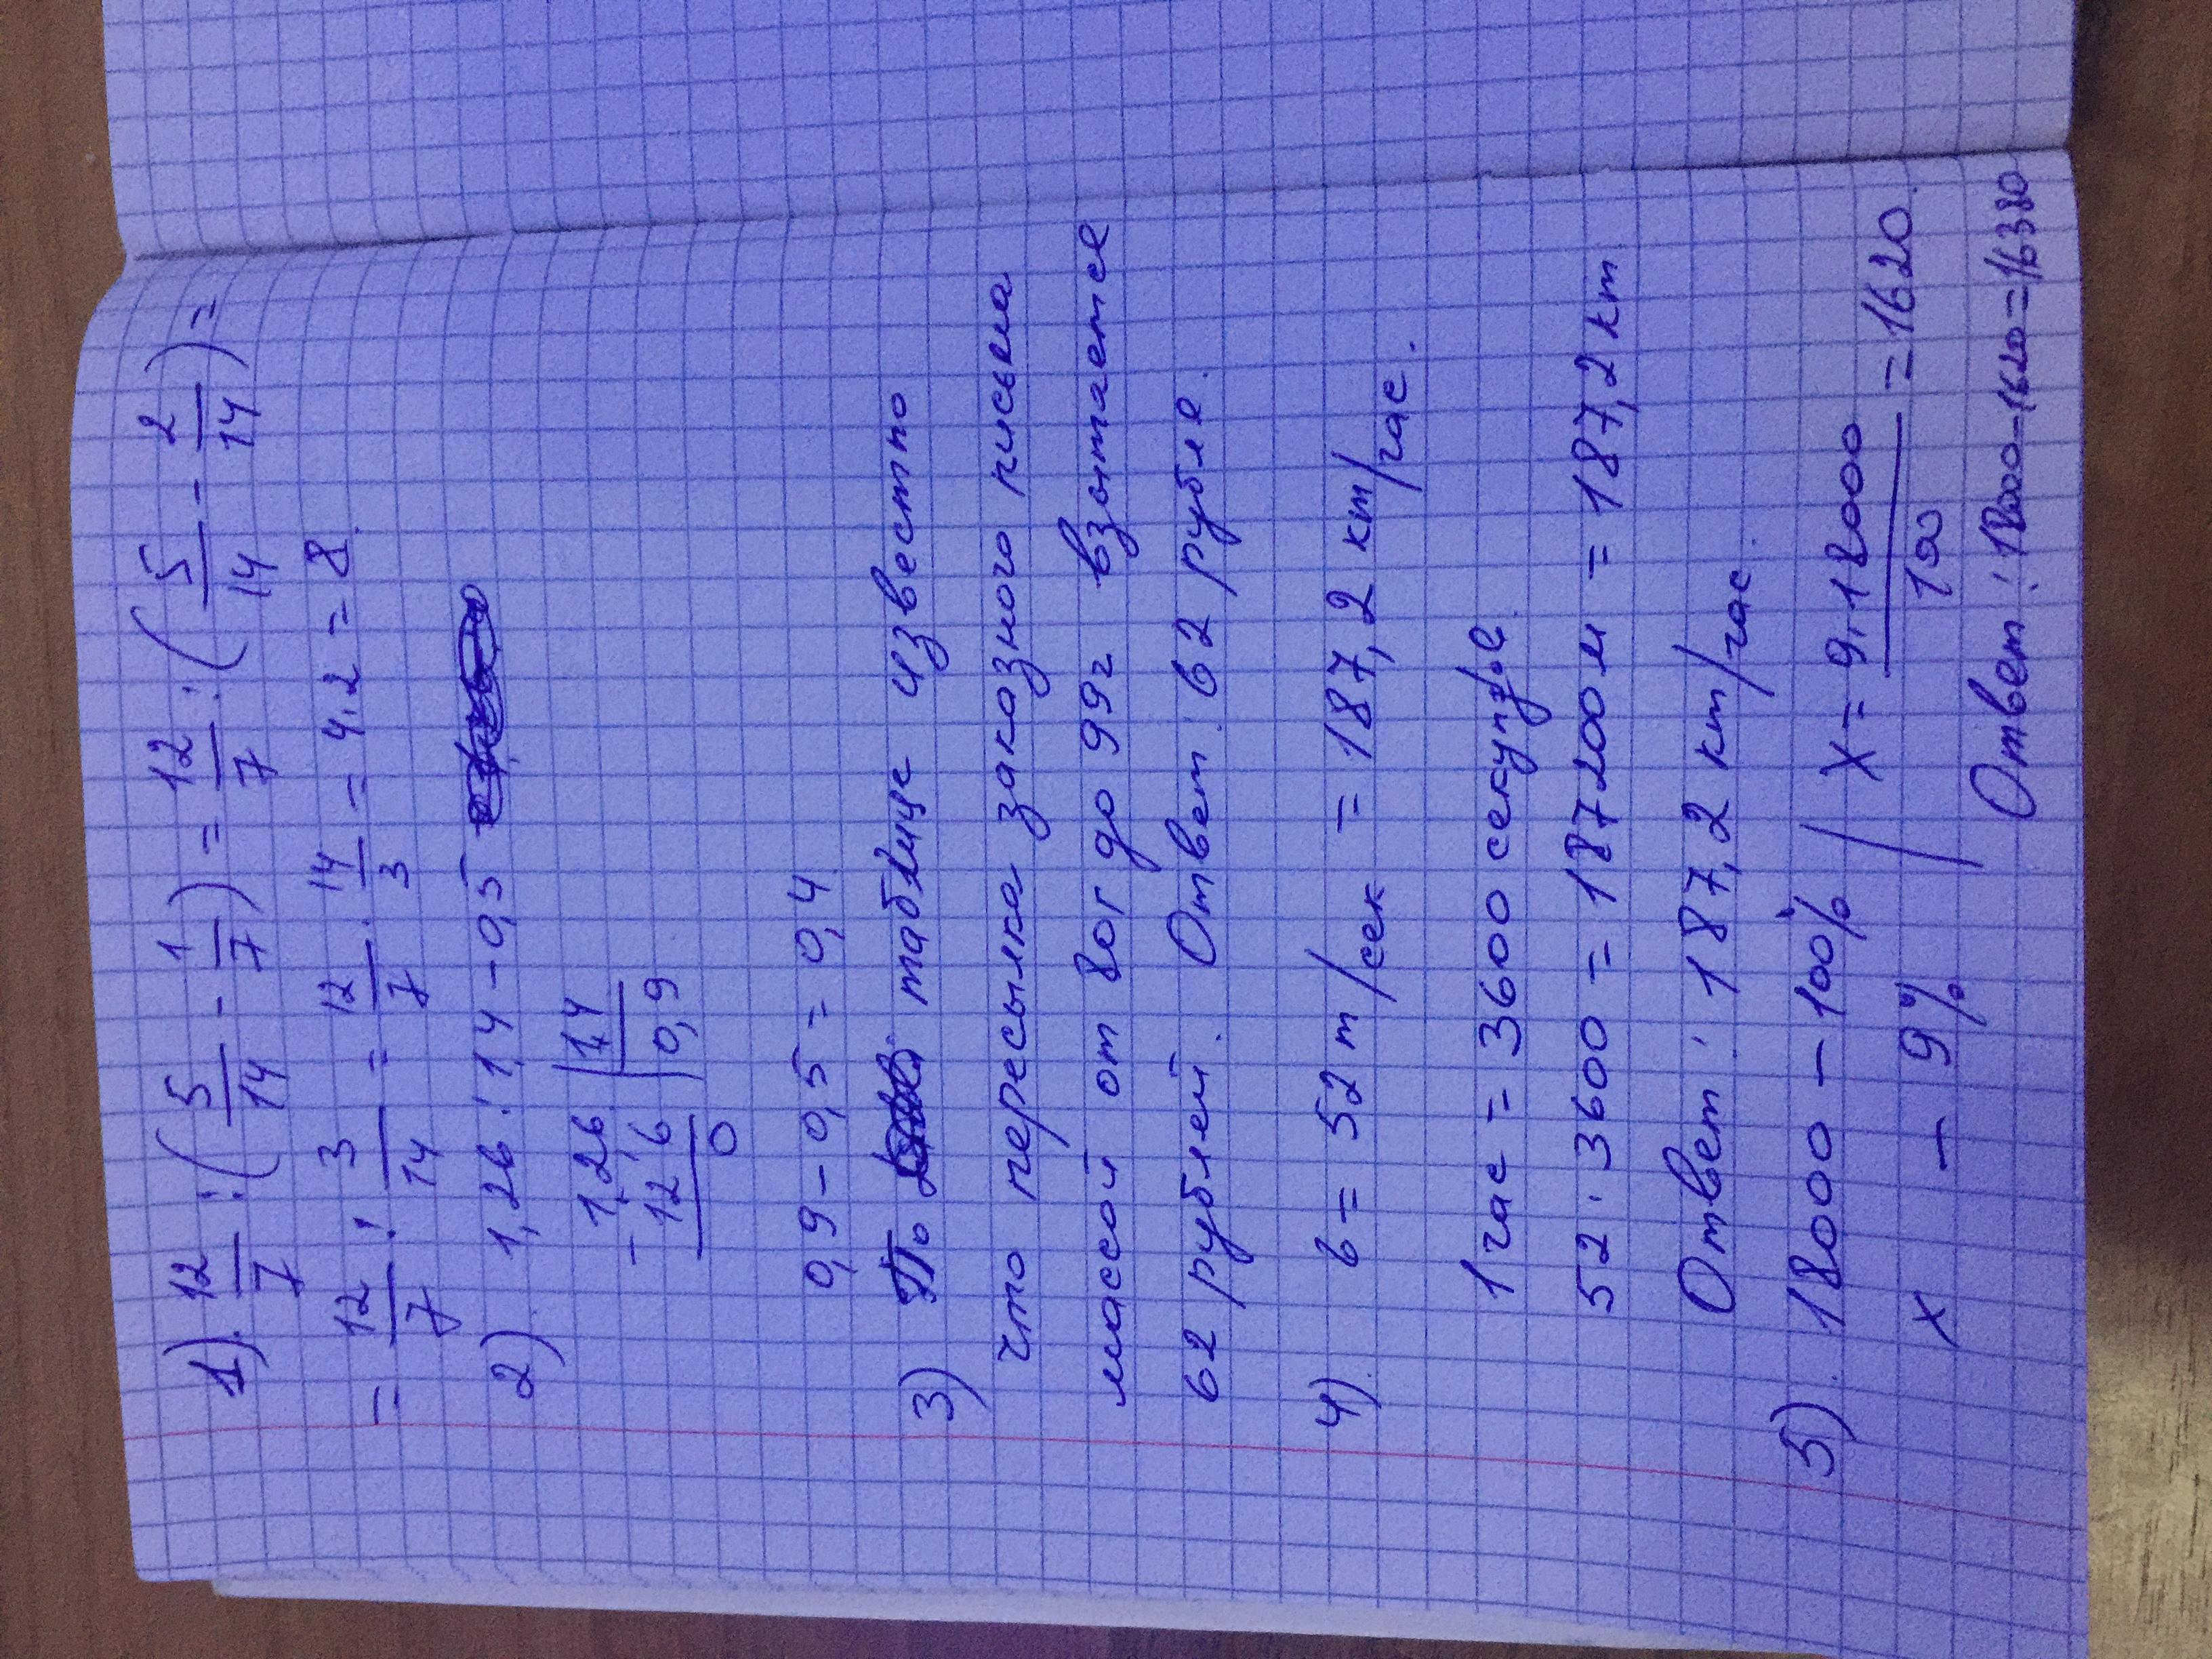 1). 12/7 : (5/14 - 1/7) = 12/7 : (5/14 - 2/14) =
= 12/7 : 3/14 = 12/7 · 14/3 = 4·2 = 8.
2) 1,26 : 1,4 - 0,5
1,26 | 1,4
- 12 6 | 0,9
0
0,9 - 0,5 = 0,4
3) По таблице известно
что пересылка заказного письма
массой от 80г до 99г взымается
62 рублей. Ответ: 62 рубля.
4). 6 = 52 m/сек = 187,2 km/час.
1 час = 3600 секунд.
52 · 3600 = 187200 м = 187,2 km
Ответ: 187,2 km/час.
5). 18000 - 100% | x = 9·18000/100 = 1620.
x - 9%
Ответ: 18000-1620=16380